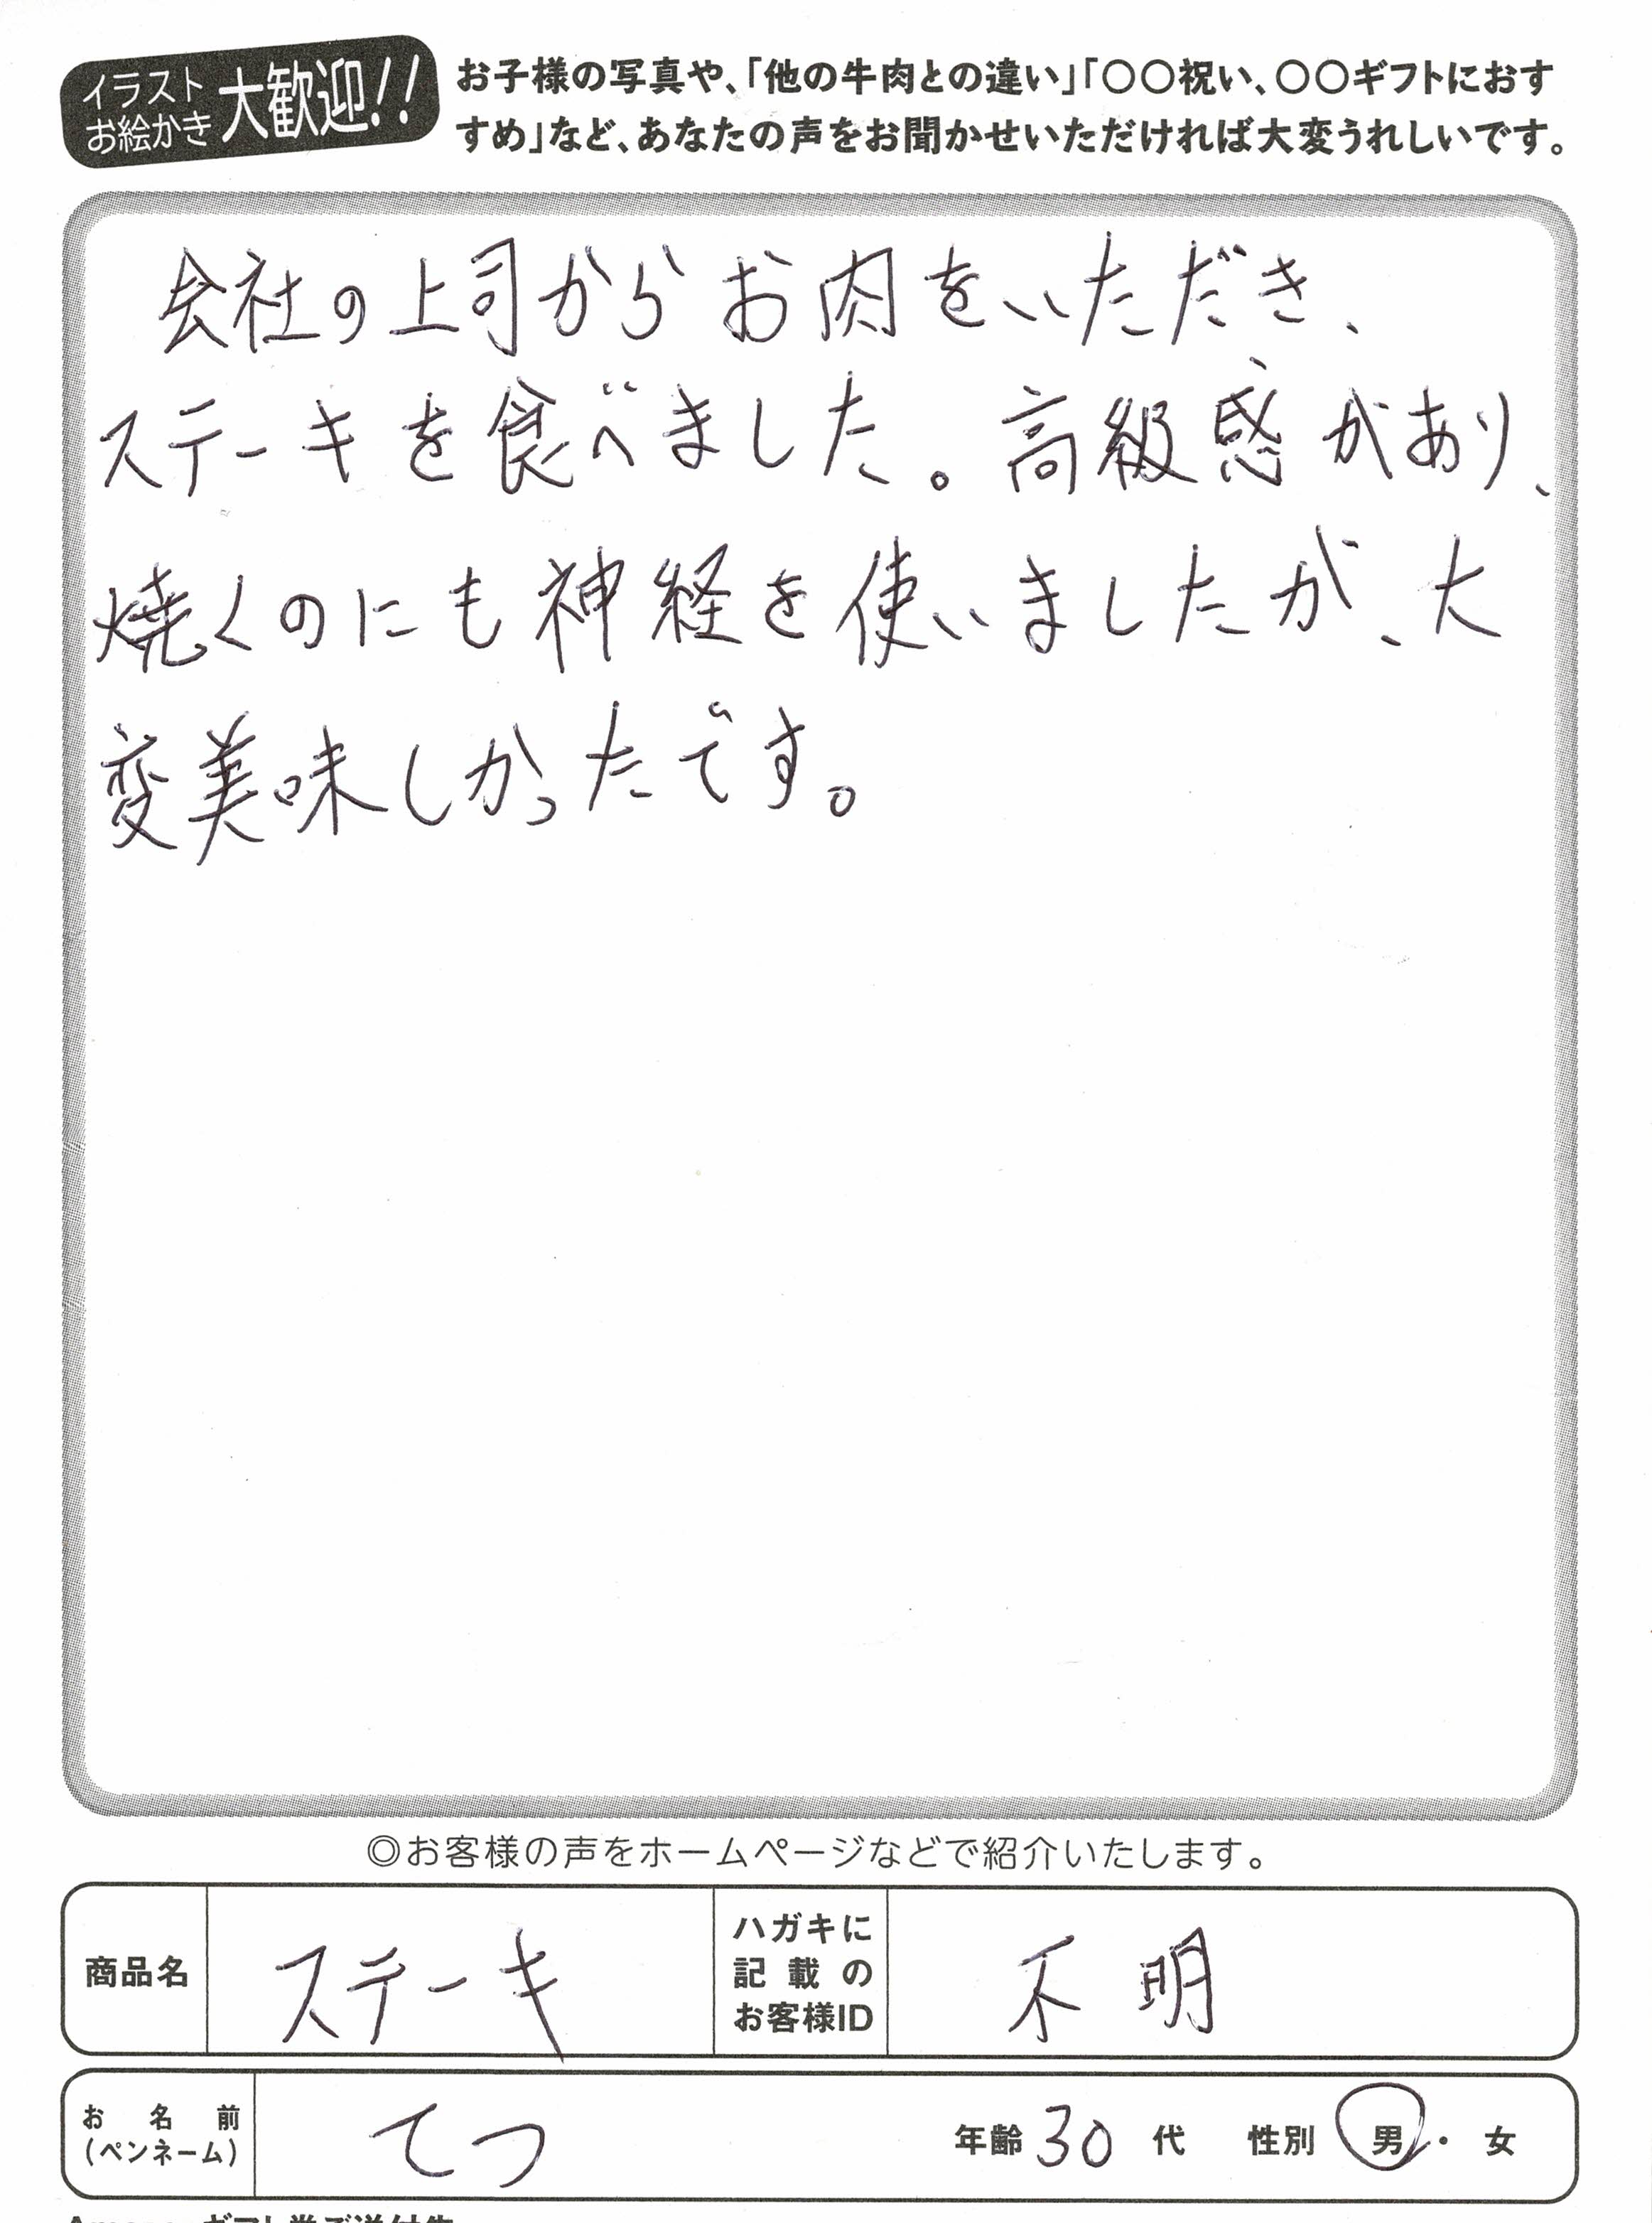 イラスト
お絵かき
大歓迎!!
お子様の写真や、「他の牛肉との違い」「〇〇祝い、〇〇ギフトにおす
すめ」など、あなたの声をお聞かせいただければ大変うれしいです。
会社の上司からお肉をいただき、
ステーキを食べました。高級感があり、
焼くのにも神経を使いましたが、大
変美味しかったです。
◎お客様の声をホームページなどで紹介いたします。
商品名 ステーキ
ハガキに
記載の
お客様ID
不明
お名前
(ペンネーム)
てつ
年齢 30 代 性別 男・女